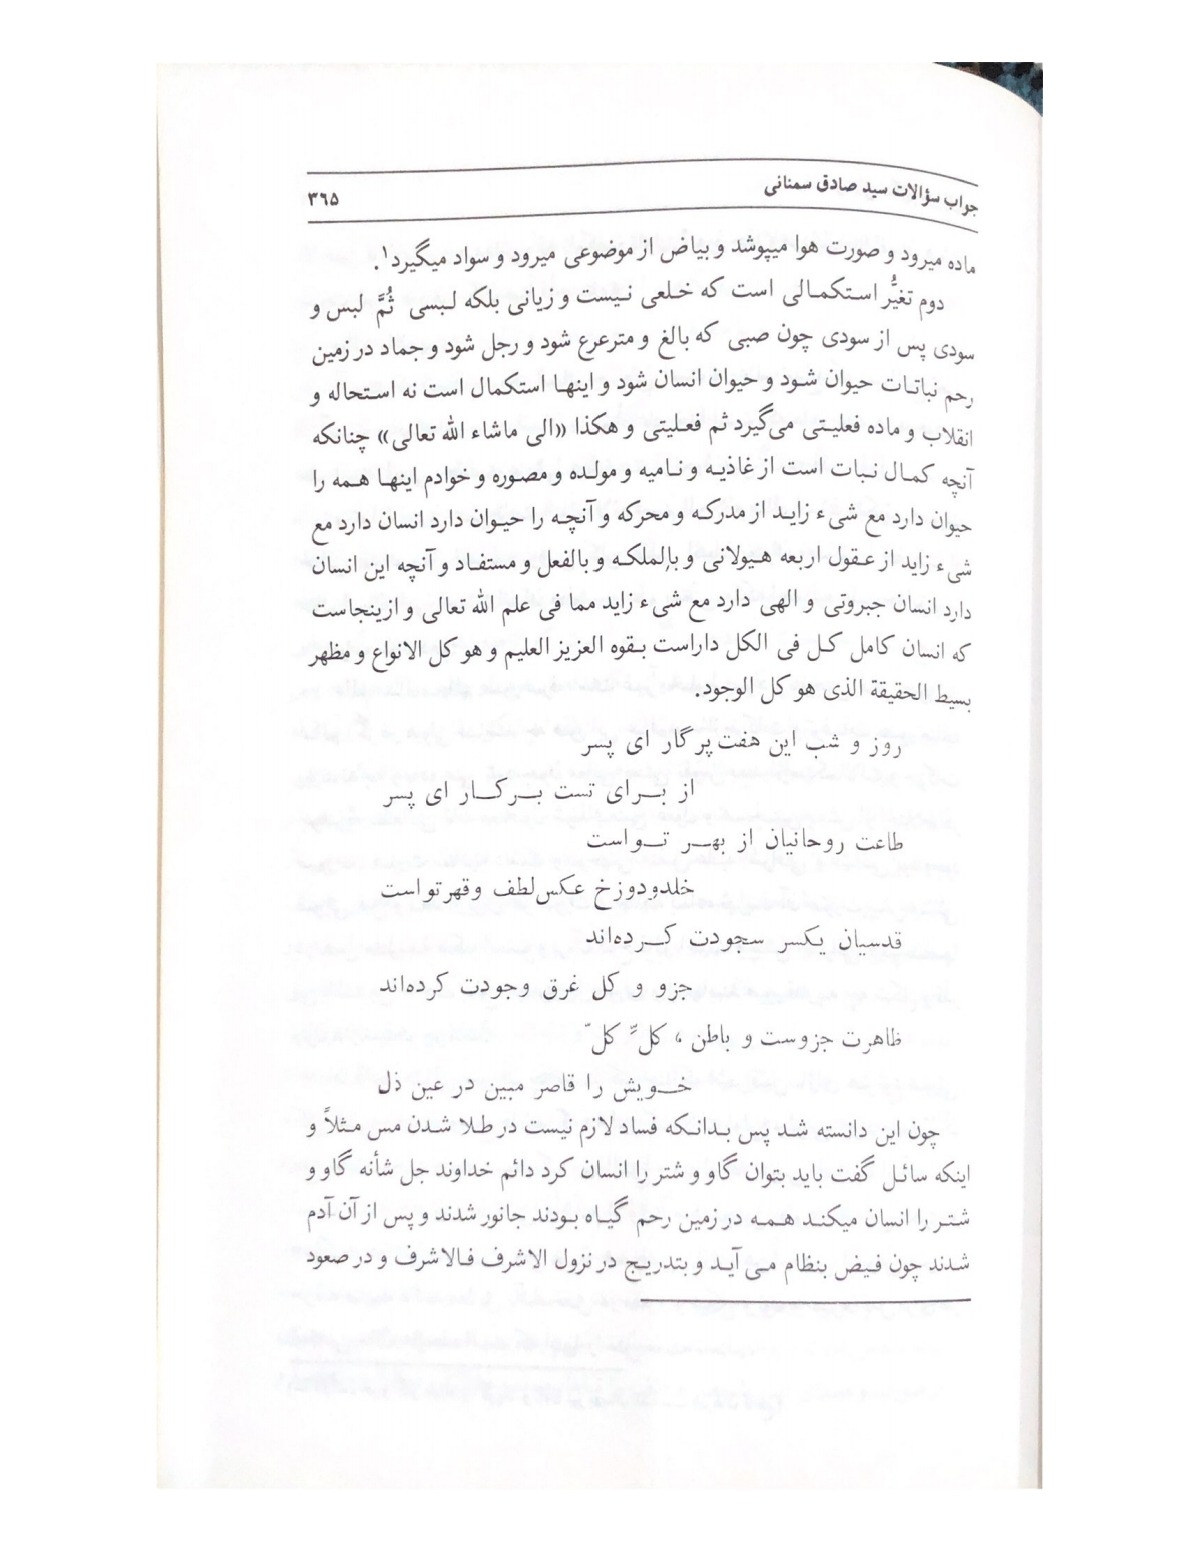 جواب سؤالات سید صادق سمنانی ۳۶۵
ماده میرود و صورت هوا میپوشد و بیاض از موضوعی میرود و سواد میگیرد۱.
دوم تغیُّر استکمالی است که خلعی نیست و زیانی بلکه لبسی ثُمَّ لبس و
سودی پس از سودی چون صبی که بالغ و مترعرع شود و رجل شود و جماد در زمین
رحم نباتات حیوان شود و حیوان انسان شود و اینها استکمال است نه استحاله و
انقلاب و ماده فعلیتی می‌گیرد ثم فعلیتی و هکذا «الی ماشاء الله تعالی» چنانکه
آنچه کمال نبات است از غاذیه و نامیه و مولده و مصوره و خوادم اینها همه را
حیوان دارد مع شیء زاید از مدرکه و محرکه و آنچه را حیوان دارد انسان دارد مع
شیء زاید از عقول اربعه هیولانی و بالملکه و بالفعل و مستفاد و آنچه این انسان
دارد انسان جبروتی و الهی دارد مع شیء زاید مما فی علم الله تعالی و ازینجاست
که انسان کامل کل فی الکل داراست بقوه العزیز العلیم و هو کل الانواع و مظهر
بسیط الحقیقة الذی هو کل الوجود.
روز و شب این هفت پرگار ای پسر
از برای تست برکار ای پسر
طاعت روحانیان از بهر تو است
خلدودوزخ عکس لطف وقهرتواست
قدسیان یکسر سجودت کرده‌اند
جزو و کل غرق وجودت کرده‌اند
ظاهرت جزوست و باطن، کلِّ کلّ
خویش را قاصر مبین در عین ذل
چون این دانسته شد پس بدانکه فساد لازم نیست در طلا شدن مس مثلاً و
اینکه سائل گفت باید بتوان گاو و شتر را انسان کرد دائم خداوند جل شأنه گاو و
شتر را انسان میکند همه در زمین رحم گیاه بودند جانور شدند و پس از آن آدم
شدند چون فیض بنظام می‌آید و بتدریج در نزول الاشرف فالاشرف و در صعود